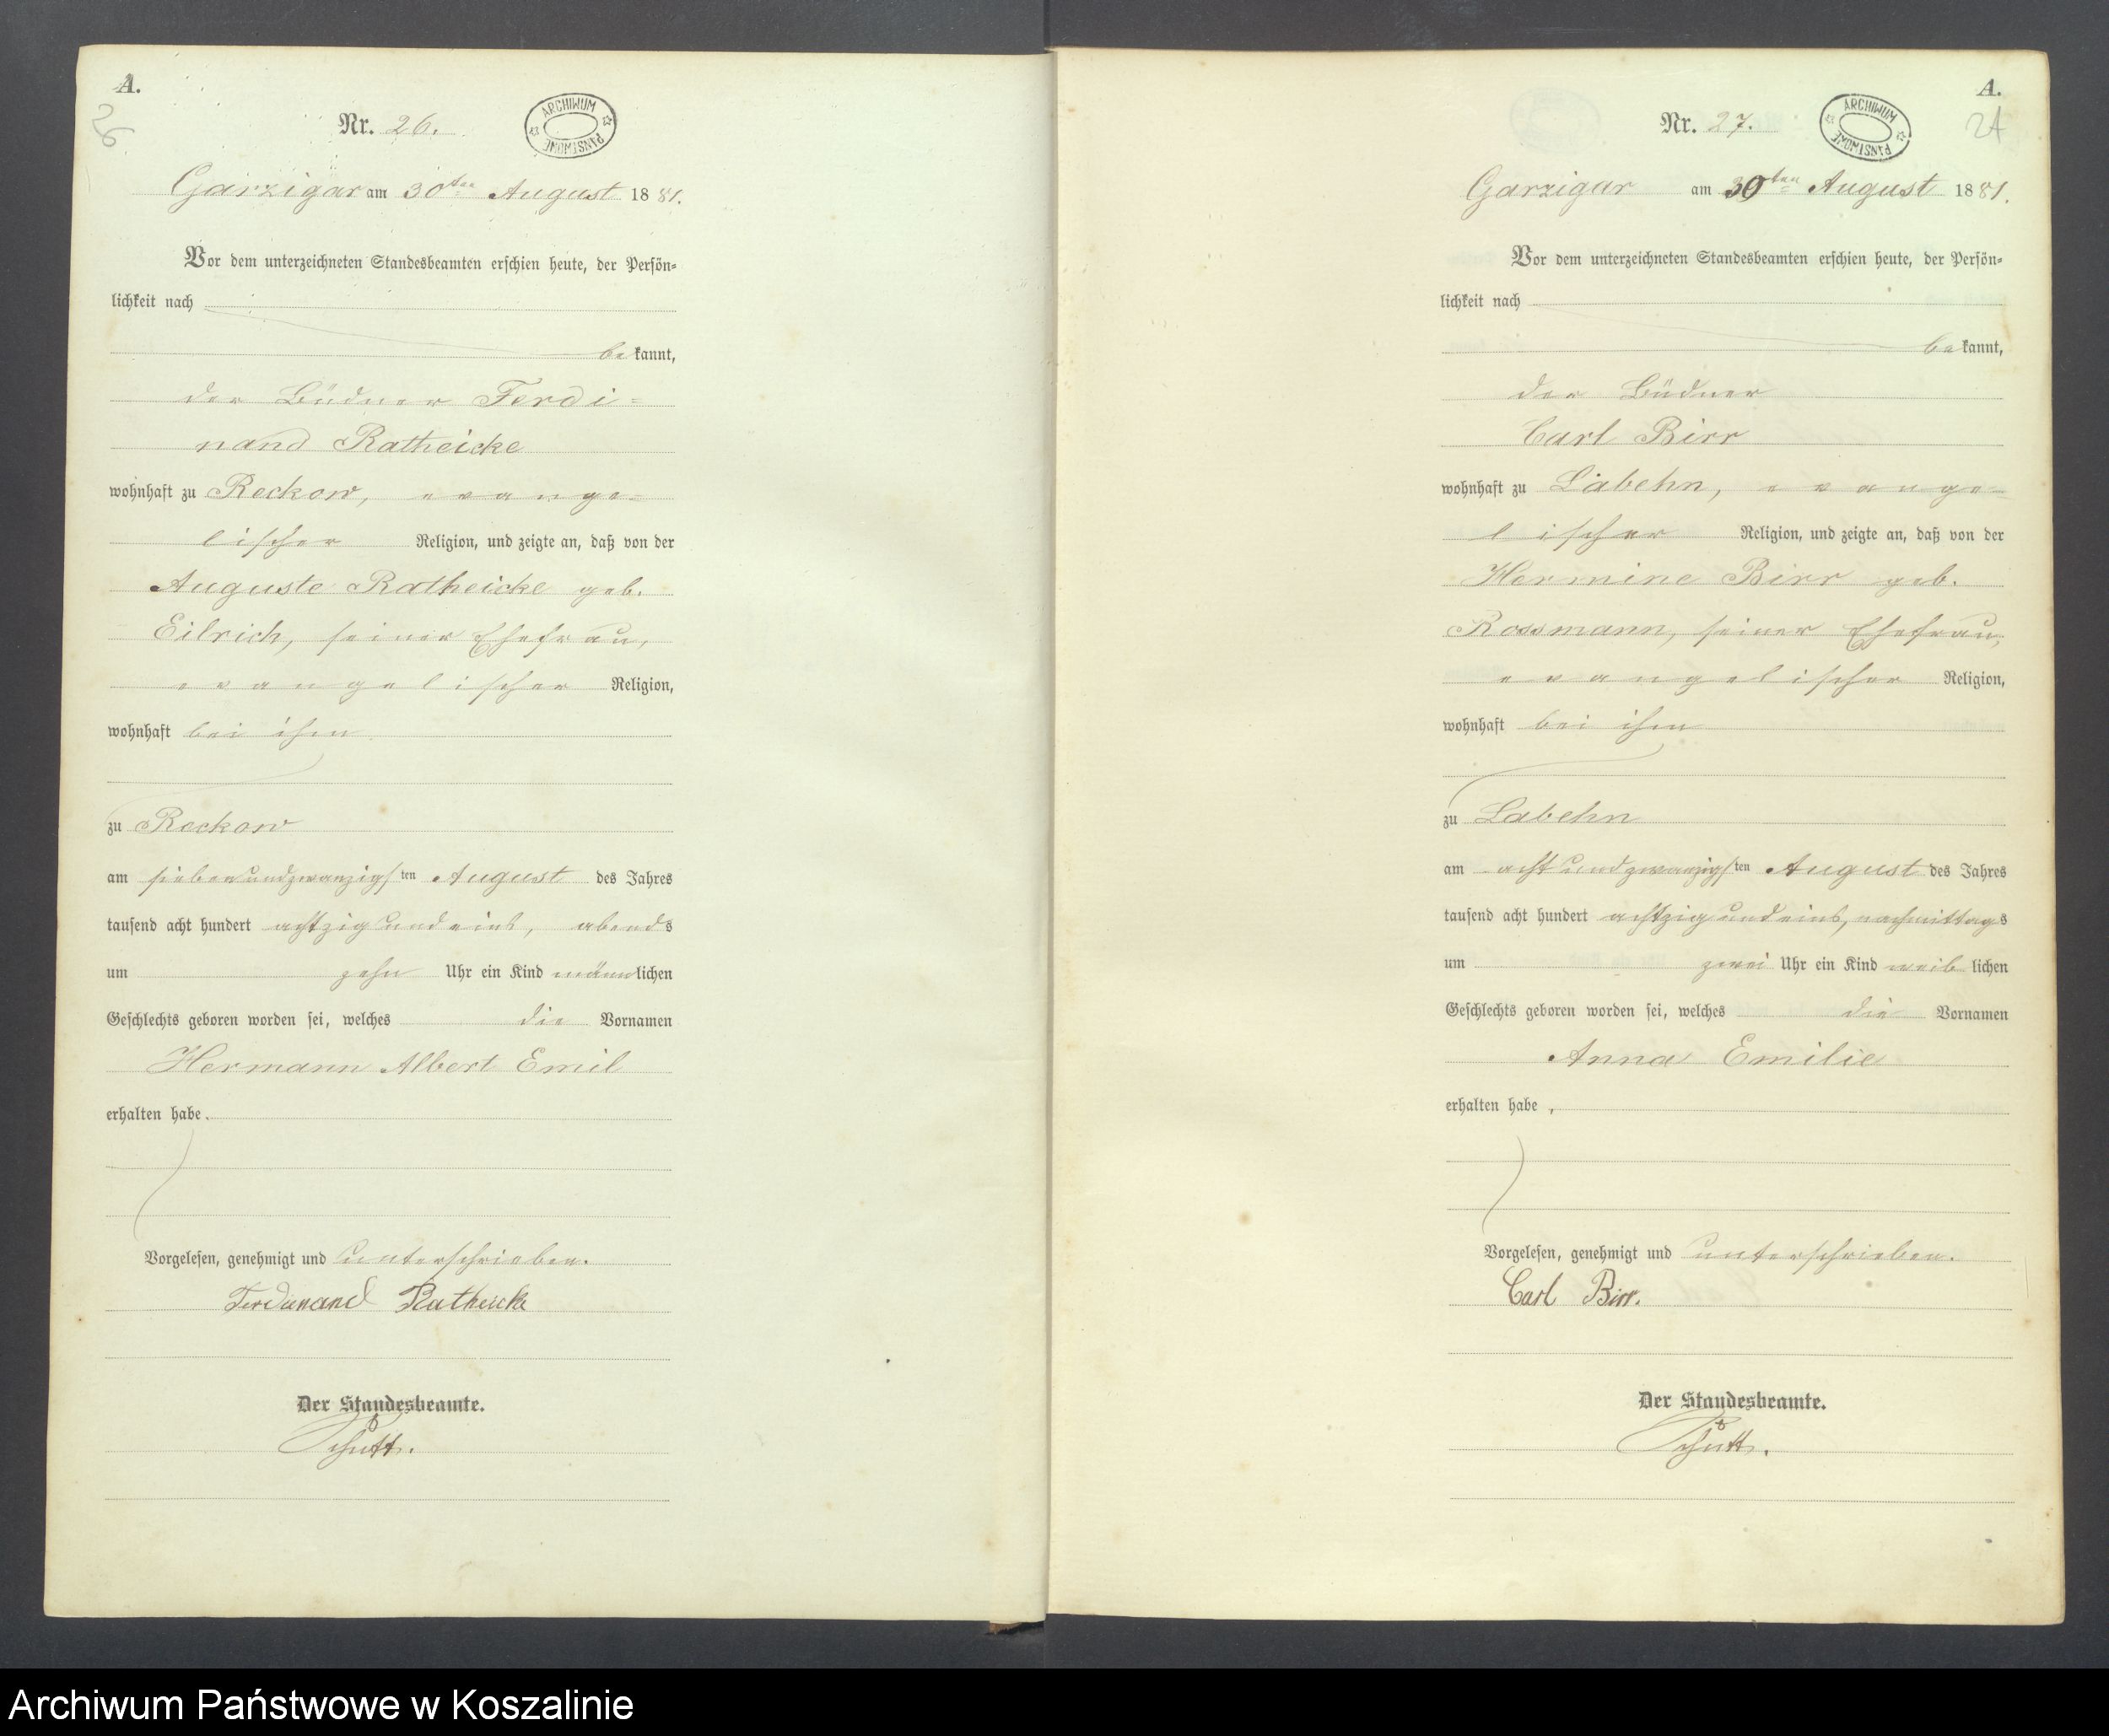 A.
26
Nr. 26.
ARCHIWUM PAŃSTWOWE
Garzigar am 30ten August 1881.
Vor dem unterzeichneten Standesbeamten erschien heute, der Persön-
lichkeit nach
bekannt,
der Büdner Ferdi-
nand Ratheicke
wohnhaft zu Reckow, evange-
lischer Religion, und zeigte an, daß von der
Auguste Ratheicke geb.
Eilrich, seiner Ehefrau,
evangelischer Religion,
wohnhaft bei ihm
zu Reckow
am siebenundzwanzigsten August des Jahres
tausend acht hundert achtzig und eins, abends
um zehn Uhr ein Kind männlichen
Geschlechts geboren worden sei, welches die Vornamen
Hermann Albert Emil
erhalten habe.
Vorgelesen, genehmigt und unterschrieben.
Ferdinand Ratheicke
Der Standesbeamte.
Schütt.
A.
Nr. 27.
ARCHIWUM PAŃSTWOWE
Garzigar am 30ten August 1881.
Vor dem unterzeichneten Standesbeamten erschien heute, der Persön-
lichkeit nach
bekannt,
der Büdner
Carl Birr
wohnhaft zu Labehn, evange-
lischer Religion, und zeigte an, daß von der
Hermine Birr geb.
Rossmann, seiner Ehefrau,
evangelischer Religion,
wohnhaft bei ihm
zu Labehn
am achtundzwanzigsten August des Jahres
tausend acht hundert achtzig und eins, nachmittags
um zwei Uhr ein Kind weiblichen
Geschlechts geboren worden sei, welches die Vornamen
Anna Emilie
erhalten habe.
Vorgelesen, genehmigt und unterschrieben.
Carl Birr.
Der Standesbeamte.
Schütt.
Archiwum Państwowe w Koszalinie